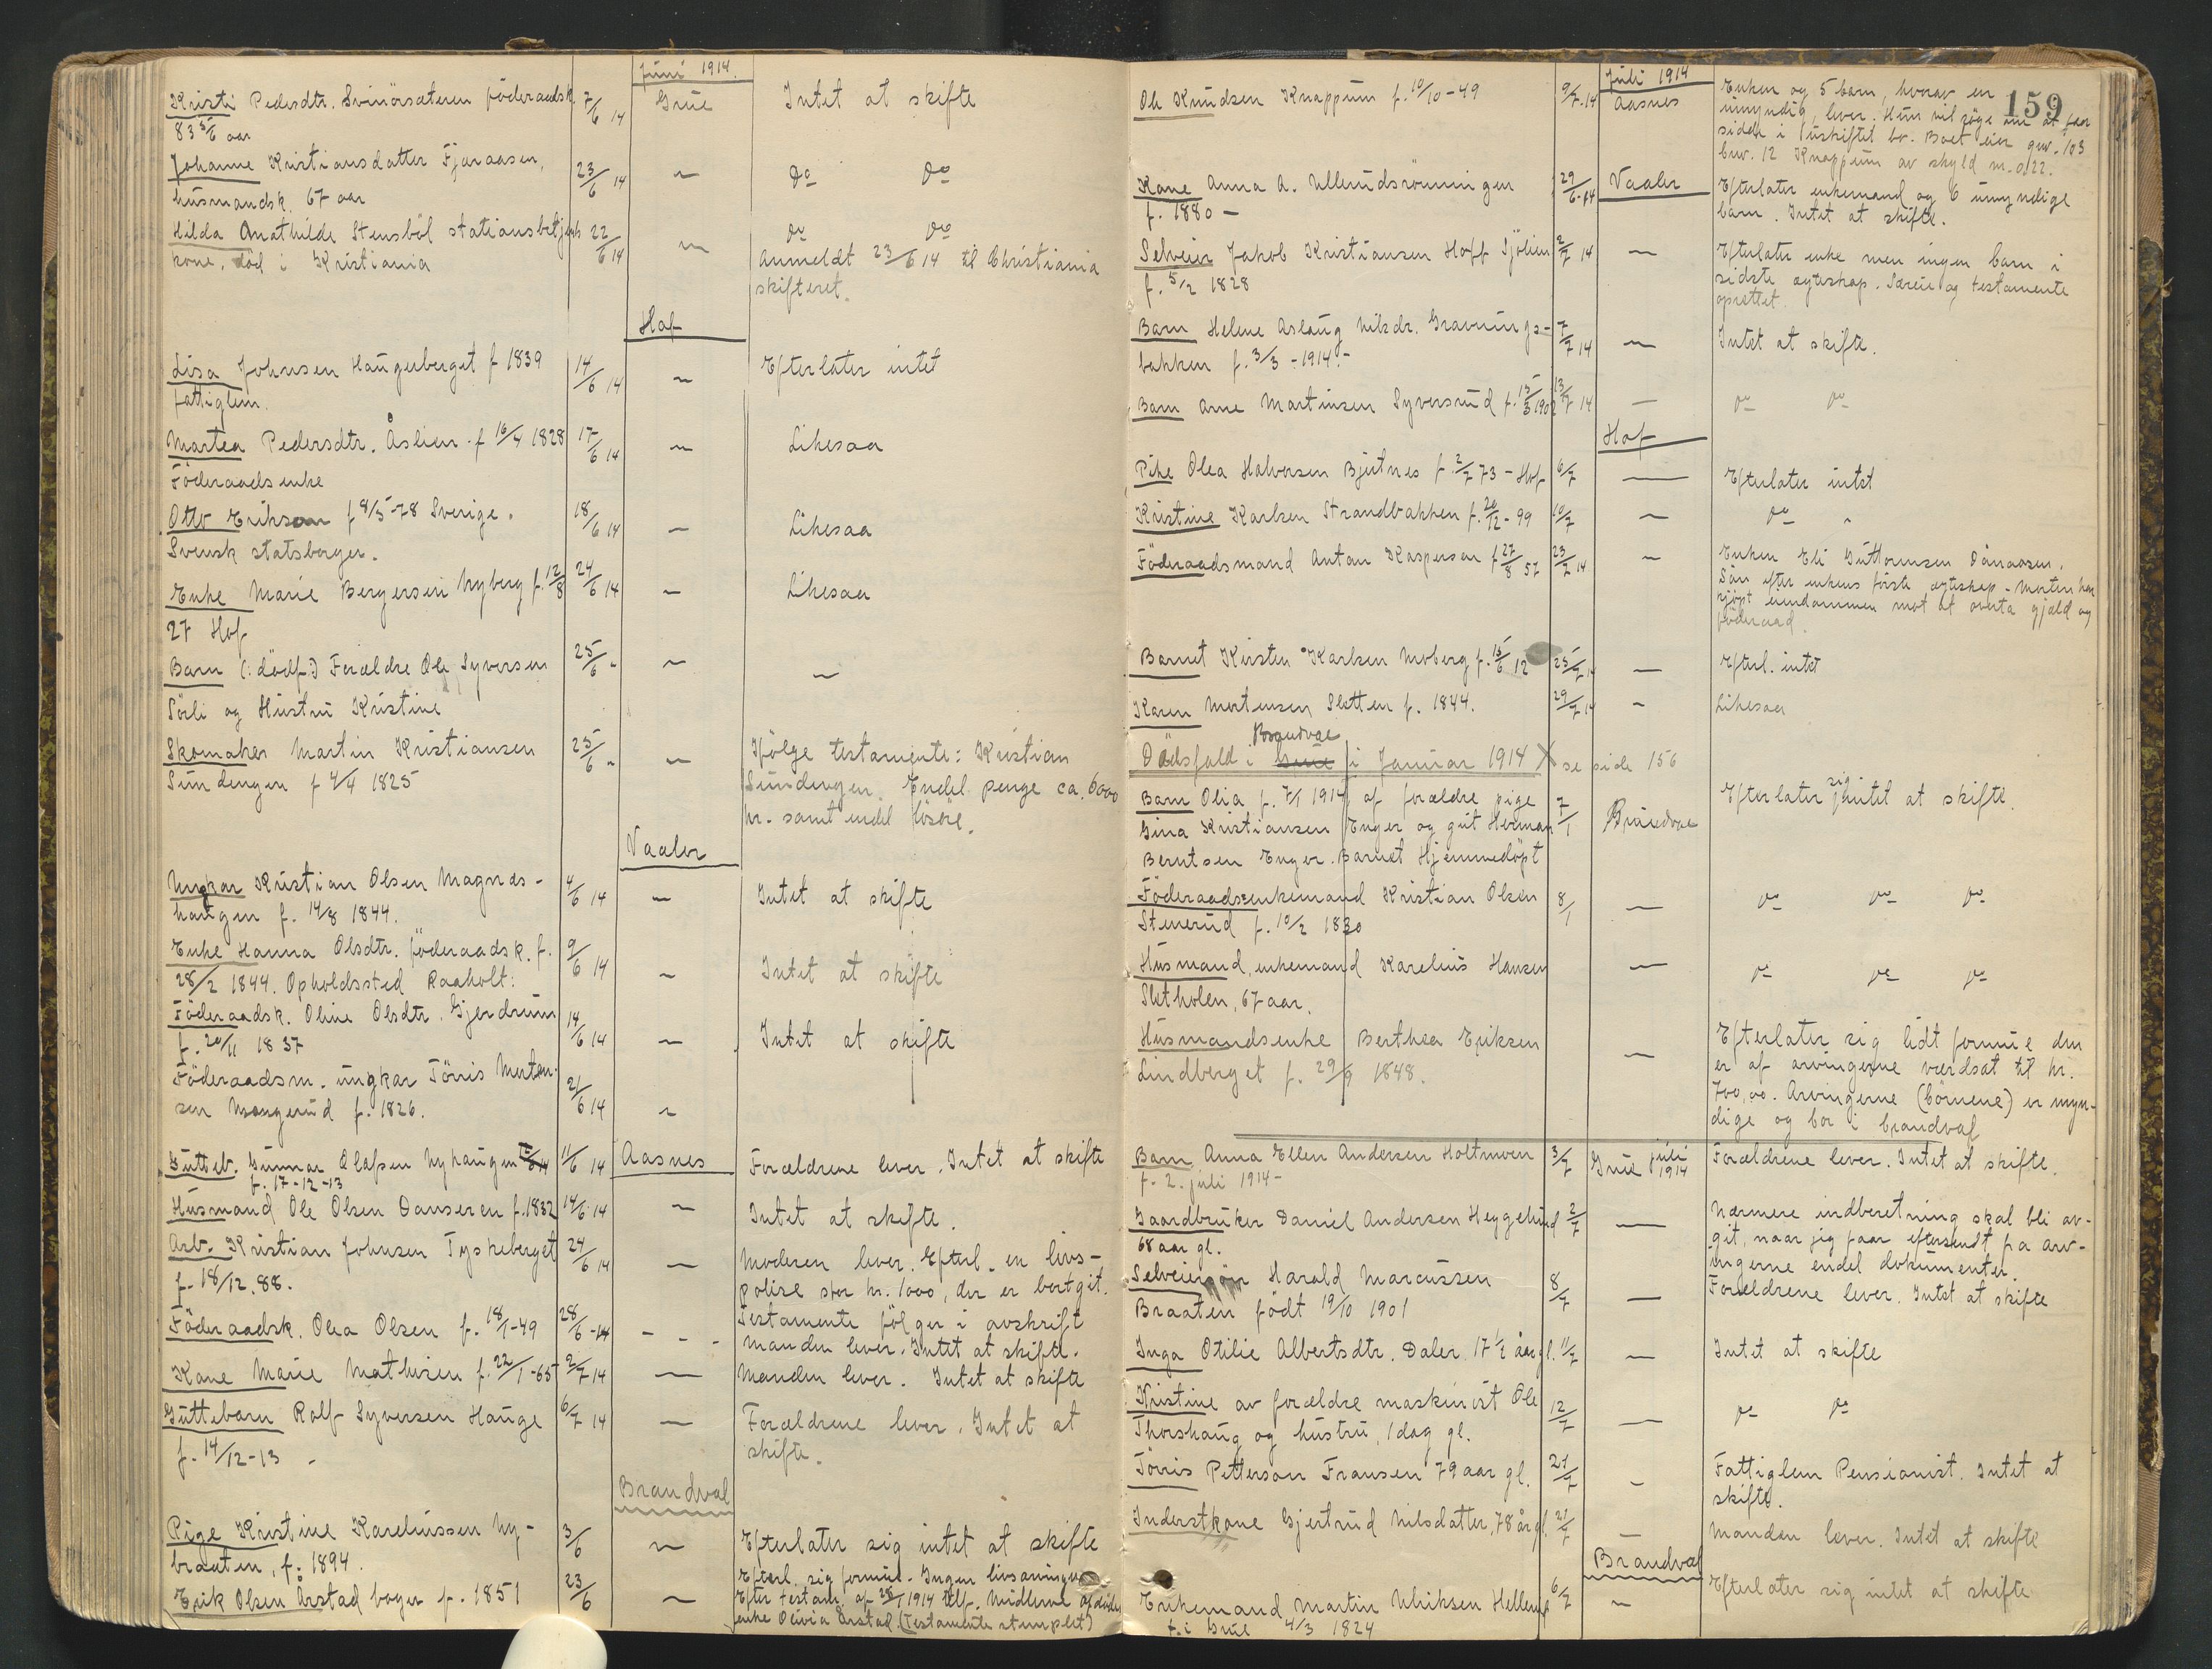 Juni 1914.
Kristi Pedersdtr. Svinörsæteren föderaadsk. 7/6 14 Grue Intet at skifte
83 5/6 aar
Johanne Kristiansdatter Fjøraasen, 23/6 14 " Do Do
husmandsk. 67 aar
Hilda Mathilde Stensböl stationsbetj. 22/6 14 " Do Do
kone, död i Kristiania Anmeldt 23/6 14 til Christiania
skifteret.
Hof
Lisa Johnsen Haugerberget f 1839 14/6 14 " Efterlater intet
fattiglem.
Martea Pedersdtr. Åslien f 16/4 1828 17/6 14 " Likesaa
Föderaads enke
Otto Erikson f 8/5-78 Sverige. 18/6 14 " Likesaa
Svensk statsborger.
Enke Marie Bergersen Nyberg f. 12/8 24/6 14 " Likesaa
27 Hof
Barn (: dødf:) Forældre Ole Syversen 25/6 " " "
Sörli og Hustru Kristine
Skomaker Martin Kristiansen 25/6 " " Ifölge testamente: Kristian
Sundengen f 4/4 1825 Sundengen. Endel penge ca. 6000
kr. samt endel lösöre.
Vaaler
Ungkar Kristian Olsen Magnds- 4/6 14 " Intet at skifte
haugen f. 14/8 1844.
Enke Hanna Olsdtr. föderaadsk. f. 9/6 14 " Intet at skifte
28/2 1844. Opholdssted Raaholt:
Föderaadsk. Oline Olsdtr. Gjerdrum 14/6 14 " Intet at skifte
f. 20/11 1837
Föderaadsm. ungkar Törris Morten- 21/6 14 "
sen Mangerud f. 1826.
Gutteb. Gunnar Olafsen Nyhaugen 11/6 14 Aasnes Forældrene lever. Intet at skifte
f. 17-12-13
Husmand Ole Olsen Danseren f. 1832 14/6-14 " Intet at skifte.
Arb. Kristian Johnsen Tyskeberget 24/6 14 " Moderen lever. Efterl. en livs-
f. 18/12.88. polise stor kr. 1000, der er bortgit.
Testamente fölger i avskrift
Föderaadsk. Olea Olsen f. 18/1-49 28/6-14 - - - Manden lever. Intet at skifte.
Kone Marie Mathisen f. 22/1-65 2/7 14 — Manden lever. Intet at skifte
Guttebarn Rolf Syversen Hauge 6/7 14 — Forældrene lever. Intet at
f. 14/12-13 skifte.
Brandval
Pige Kristine Kareliussen Ny- 3/6 " Efterlater sig intet at skifte
braaten, f. 1894.
Erik Olsen Årstad bager f. 1851 23/6 " Efterl. sig formue. Ingen livsarvinger
Efter testam. af 28/1 1914 tilf. midlerne afdödes
enke Olivia Årstad. (Testamente stemplet)
159
Juli 1914
Ole Knudsen Knappum f. 10/10-49 9/7.14 Aasnes Enken og 5 barn, hvorav en
umyndig, lever. Hun vil söge om at faa
sidde i uskiftet bo. Boet eier gnr. 103
bnr. 12 Knappum av skyld m. 0.22.
Kone Anna A. Ullundsrønningen 29/6.14 Vaaler Efterlater enkemand og 6 umyndige
f. 1880 - barn. Intet at skifte.
Selveier Jakob Kristiansen Hoff Sjölien 2/7 14 — Efterlater enke men ingen barn i
f. 5/2 1828 sidste egteskap. Særeie og testamente
oprettet.
Barn Helene Aslaug Nilsdr. Gravnings- 7/7 14 — Intet at skifte.
bakken f. 3/3 - 1914.-
Barn Arne Martinsen Syversrud f. 15/3 1902 13/7 14 — Do Do
Hof
Pike Olea Halvorsen Bjutnes f. 2/7 73 - Hof 6/7 — Efterlater intet
Kristine Karlsen Strandbakken f. 20/12-99 10/7 " Do "
Föderaadsmand Anton Kasperson f 27/8 57 23/7 14 " Enken Eli Guttormsen Dånaasen.
Sön efter enkens förste egteskap - Morten har
kjöpt eiendommen mot at overta gjæld og
föderaad.
Barnet Kirsten Karlsen Moberg f. 15/6 12 25/7 14 — Efterl. intet
Karen Mortensen Sletten f. 1844. 29/7 14 " Likesaa
Brandval
Dödsfald i Grue i Januar 1914 X se side 156
Barn Olia f. 7/1 1914, af forældre pige 7/1 Brandval Efterlater sig intet at skifte.
Gina Kristiansen Enger og gut Herman
Berntsen Enger. Barnet Hjemmedöpt
Föderaadsenkemand Kristian Olsen 8/1 — Do Do Do
Stenerud f. 10/2 1830
Husmand, enkemand Karelius Hansen — Do Do Do
Sletholen, 67 aar.
Husmandsenke Berthea Eriksen — Efterlater sig lidt formue den
Lindberget f. 29/9 1848. er af arvingerne værdsat til kr.
700,00. Arvingerne (börnene) er myn-
dige og bor i Brandval
Barn Anna Ellen Andersen Holtmoen 3/7 Grue juli 1914 Forældrene lever. Intet at skifte.
f. 2. juli 1914-
Gaardbruker Daniel Andersen Heggelund 2/7 — Nærmere indberetning skal bli av-
68 aar gl. git, naar jeg faar eftersendt fra arv-
ingerne endel dokumenter.
Selveiersön Harald Marcussen 8/7 — Forældrene lever. Intet at skifte
Braaten födt 19/10 1901
Inga Otilie Albertsdtr. Daler 17 1/2 aar gl. 11/7 — Intet at skifte
Kristine av forældre maskinist Ole 12/7 — Do Do
Thorshaug og hustru, 1 dag gl.
Törris Petterson Fransen 79 aar gl. 21/7 — Fattiglem Pensionist. Intet at
skifte.
Inderstkone Gjertrud Nilsdatter, 78 år gl. 21/7 — Manden lever. Intet at skifte
Brandval
Enkemand Martin Ulriksen Hellerud 6/7 " Efterlater sig intet at skifte
f. i Grue 4/3 1824